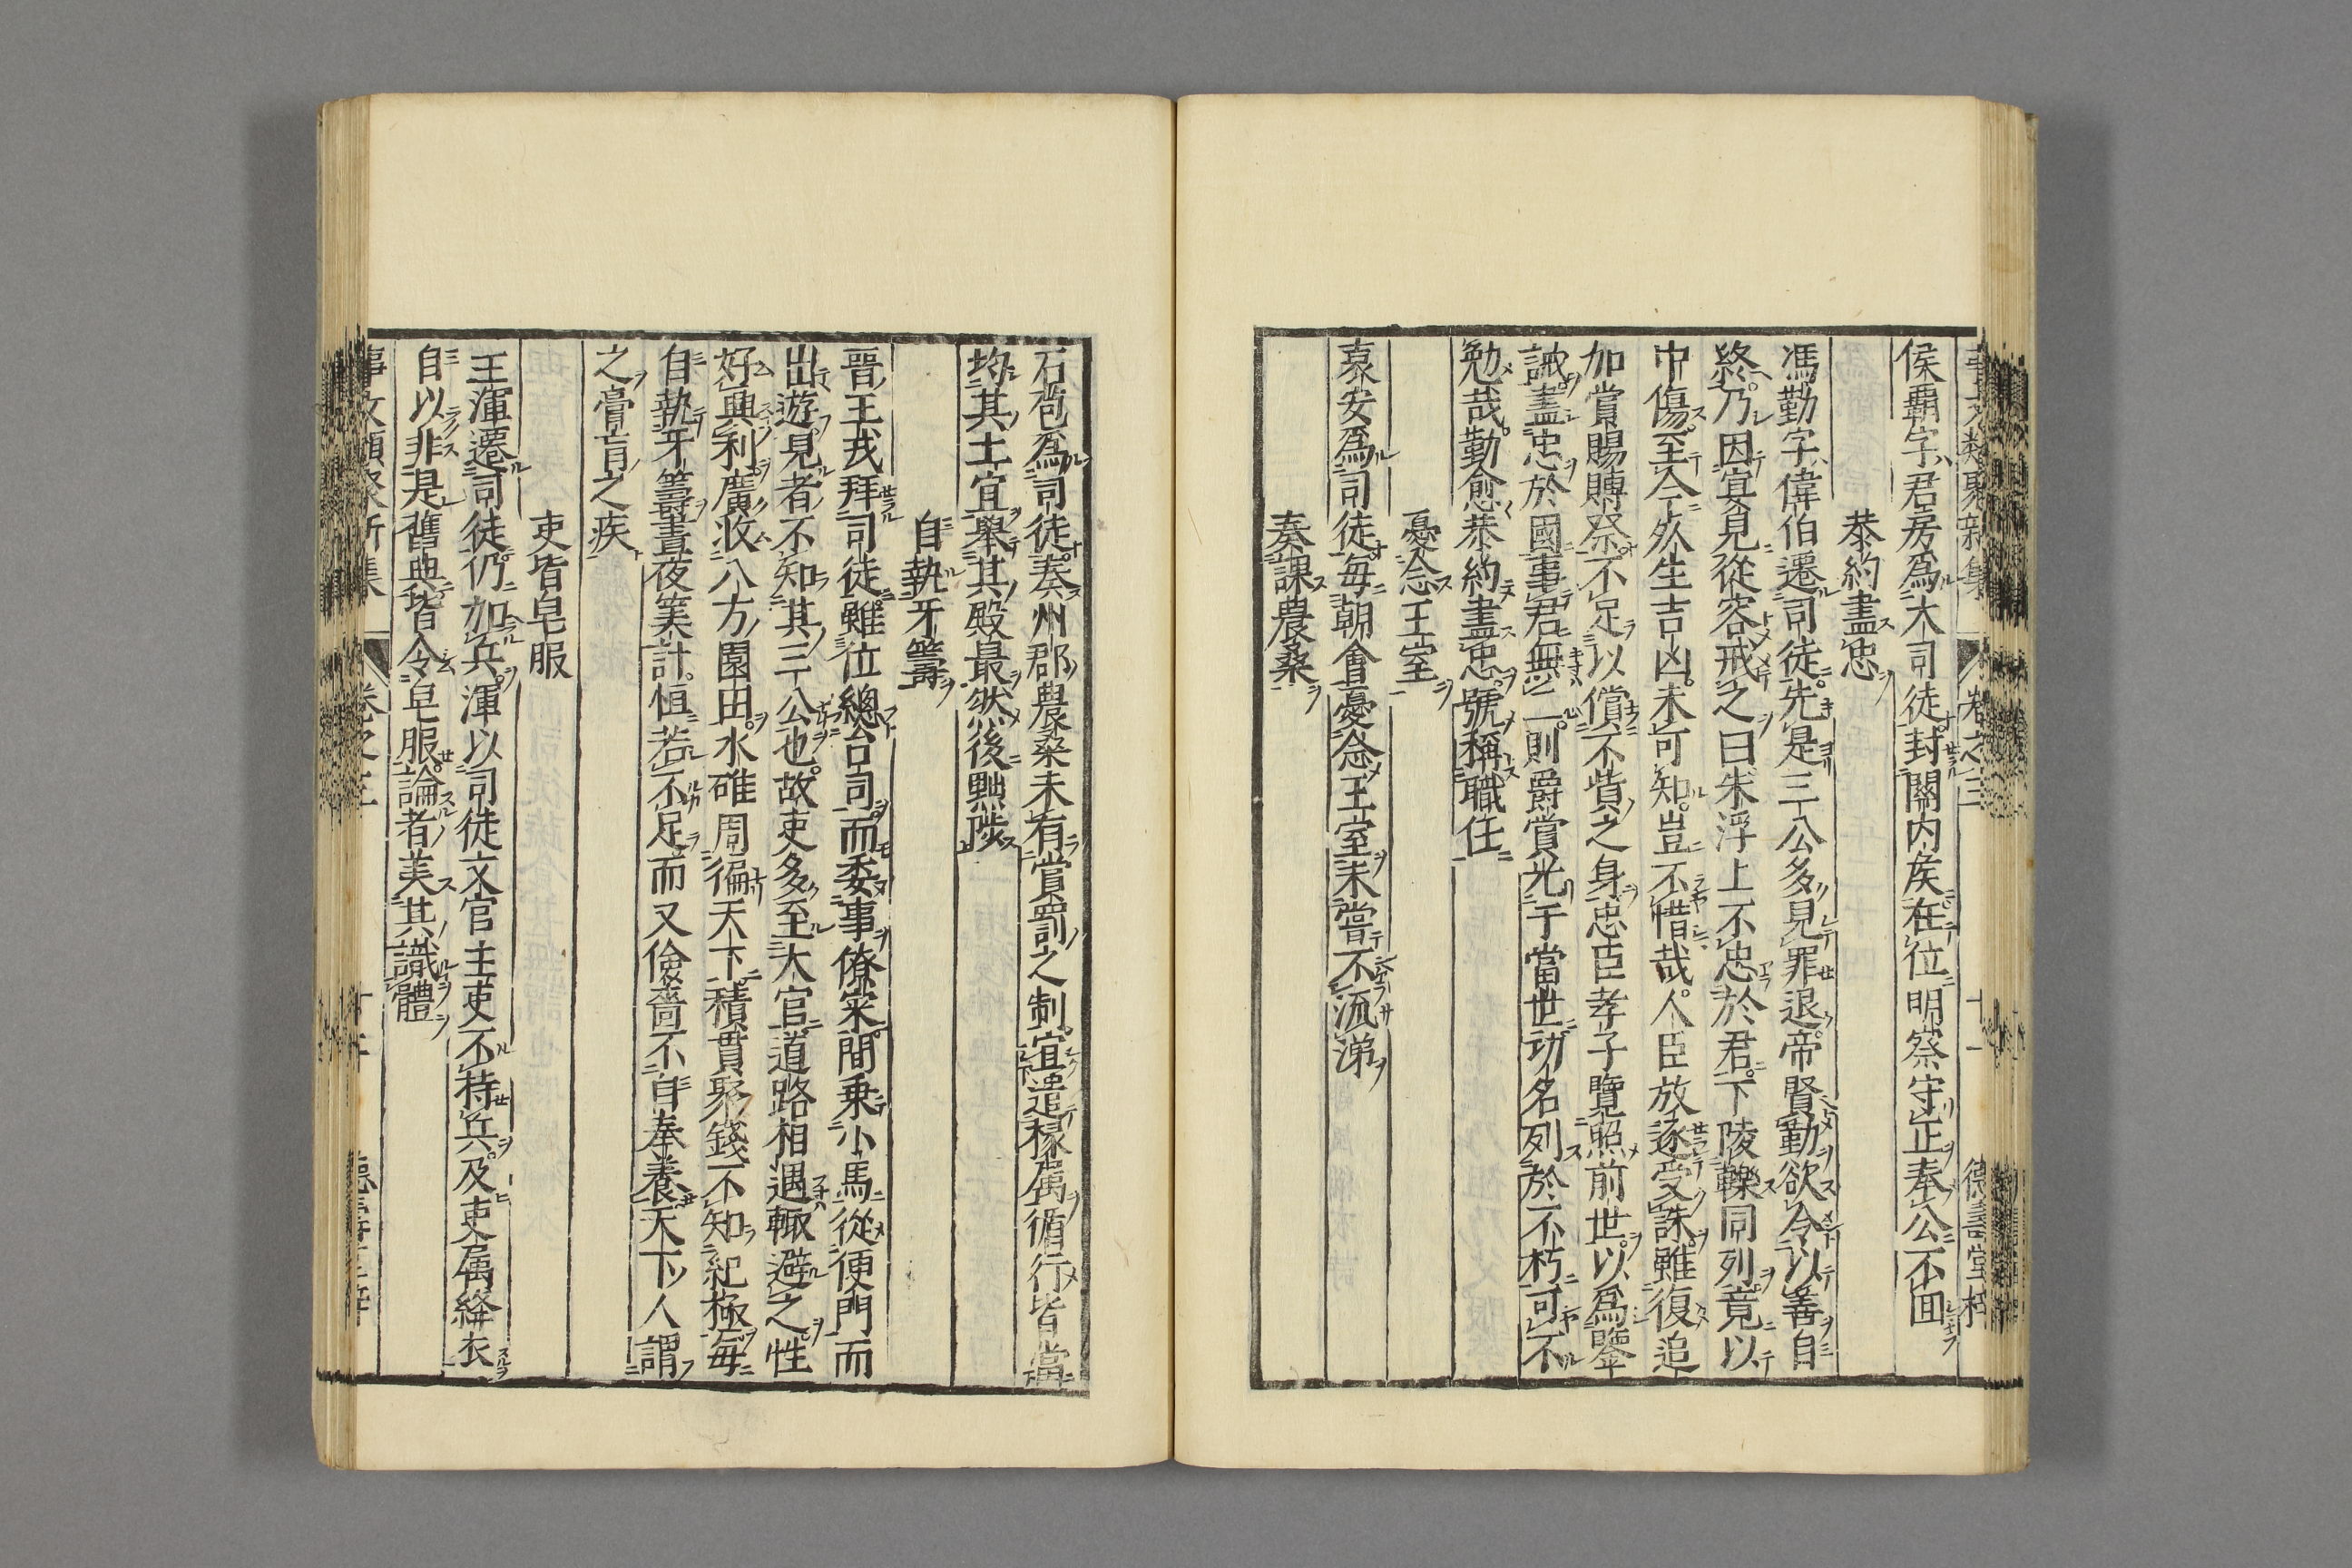 事文類聚新集 卷之三 十一 德壽堂梓
侯霸字君房爲大司徒封關内矦在位明察守正奉公不回
恭約盡忠
馮勤字偉伯遷司徒先是三公多見罪退帝賢勤欲令以善自
終乃因宴見從容戒之曰朱浮上不忠於君下陵轢同列竟以
中傷至今死生吉凶未可知豈不惜哉人臣放逐受誅雖復追
加賞賜賻祭不足以償不貲之身忠臣孝子覽照前世以爲鑒
誡盡忠於國事君無二則爵賞光于當世功名列於不朽可不
勉哉勤愈恭約盡忠號稱職任
憂念王室
袁安爲司徒每朝會憂念王室未嘗不流涕
奏課農桑
石苞爲司徒奏州郡農桑未有賞罰之制宜遣椽属循行皆當
均其土宜舉其殿最然後黜陟
自執牙籌
晉王戎拜司徒雖位總台司而委事僚寀間乗小馬從便門而
出遊見者不知其三公也故吏多至大官道路相遇輙避之性
好興利廣收八方園田水碓周徧天下積實聚錢不知紀極每
自執牙籌晝夜筭計恒若不足而又儉嗇不自奉養天下人謂
之膏肓之疾
吏皆皂服
王渾遷司徒仍加兵渾以司徒文官主吏不持兵及吏属絳衣
自以非是舊典皆令皂服論者美其識體
事文類聚新集 卷之三